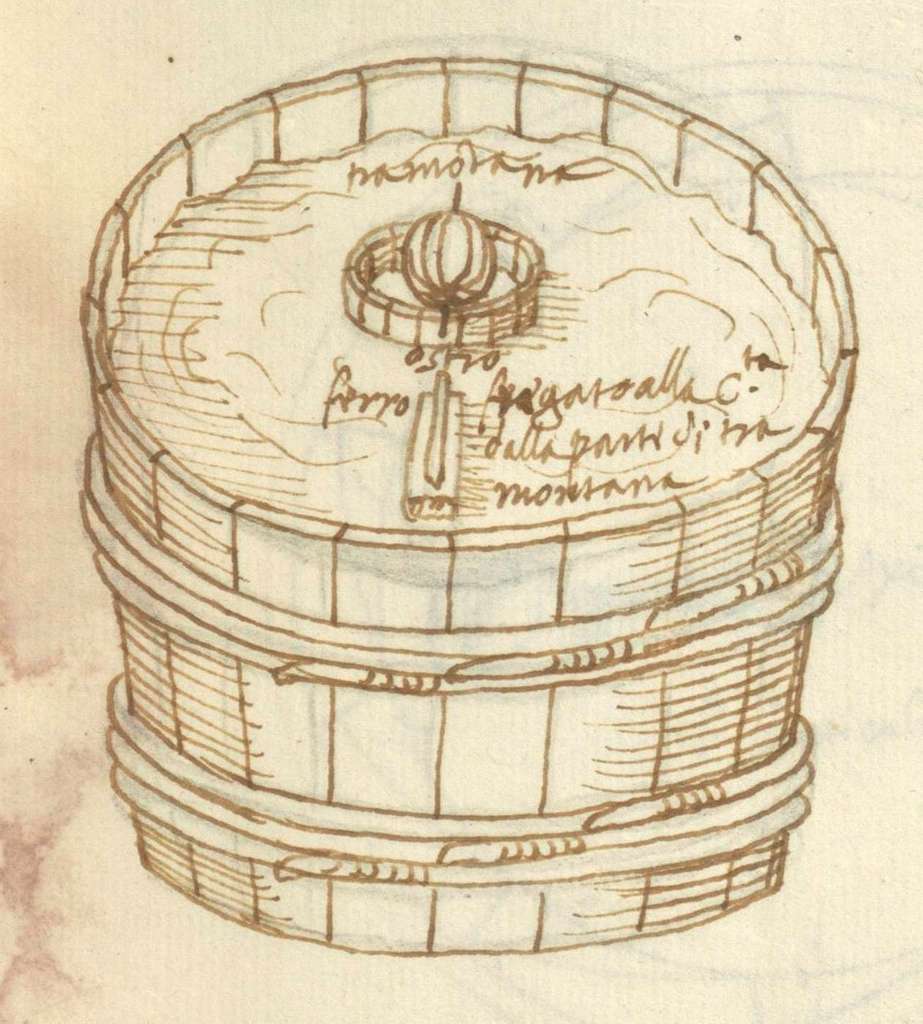 tramōtana
ostro
ferro fregato alla C.ta
dalla parte di tra
montana